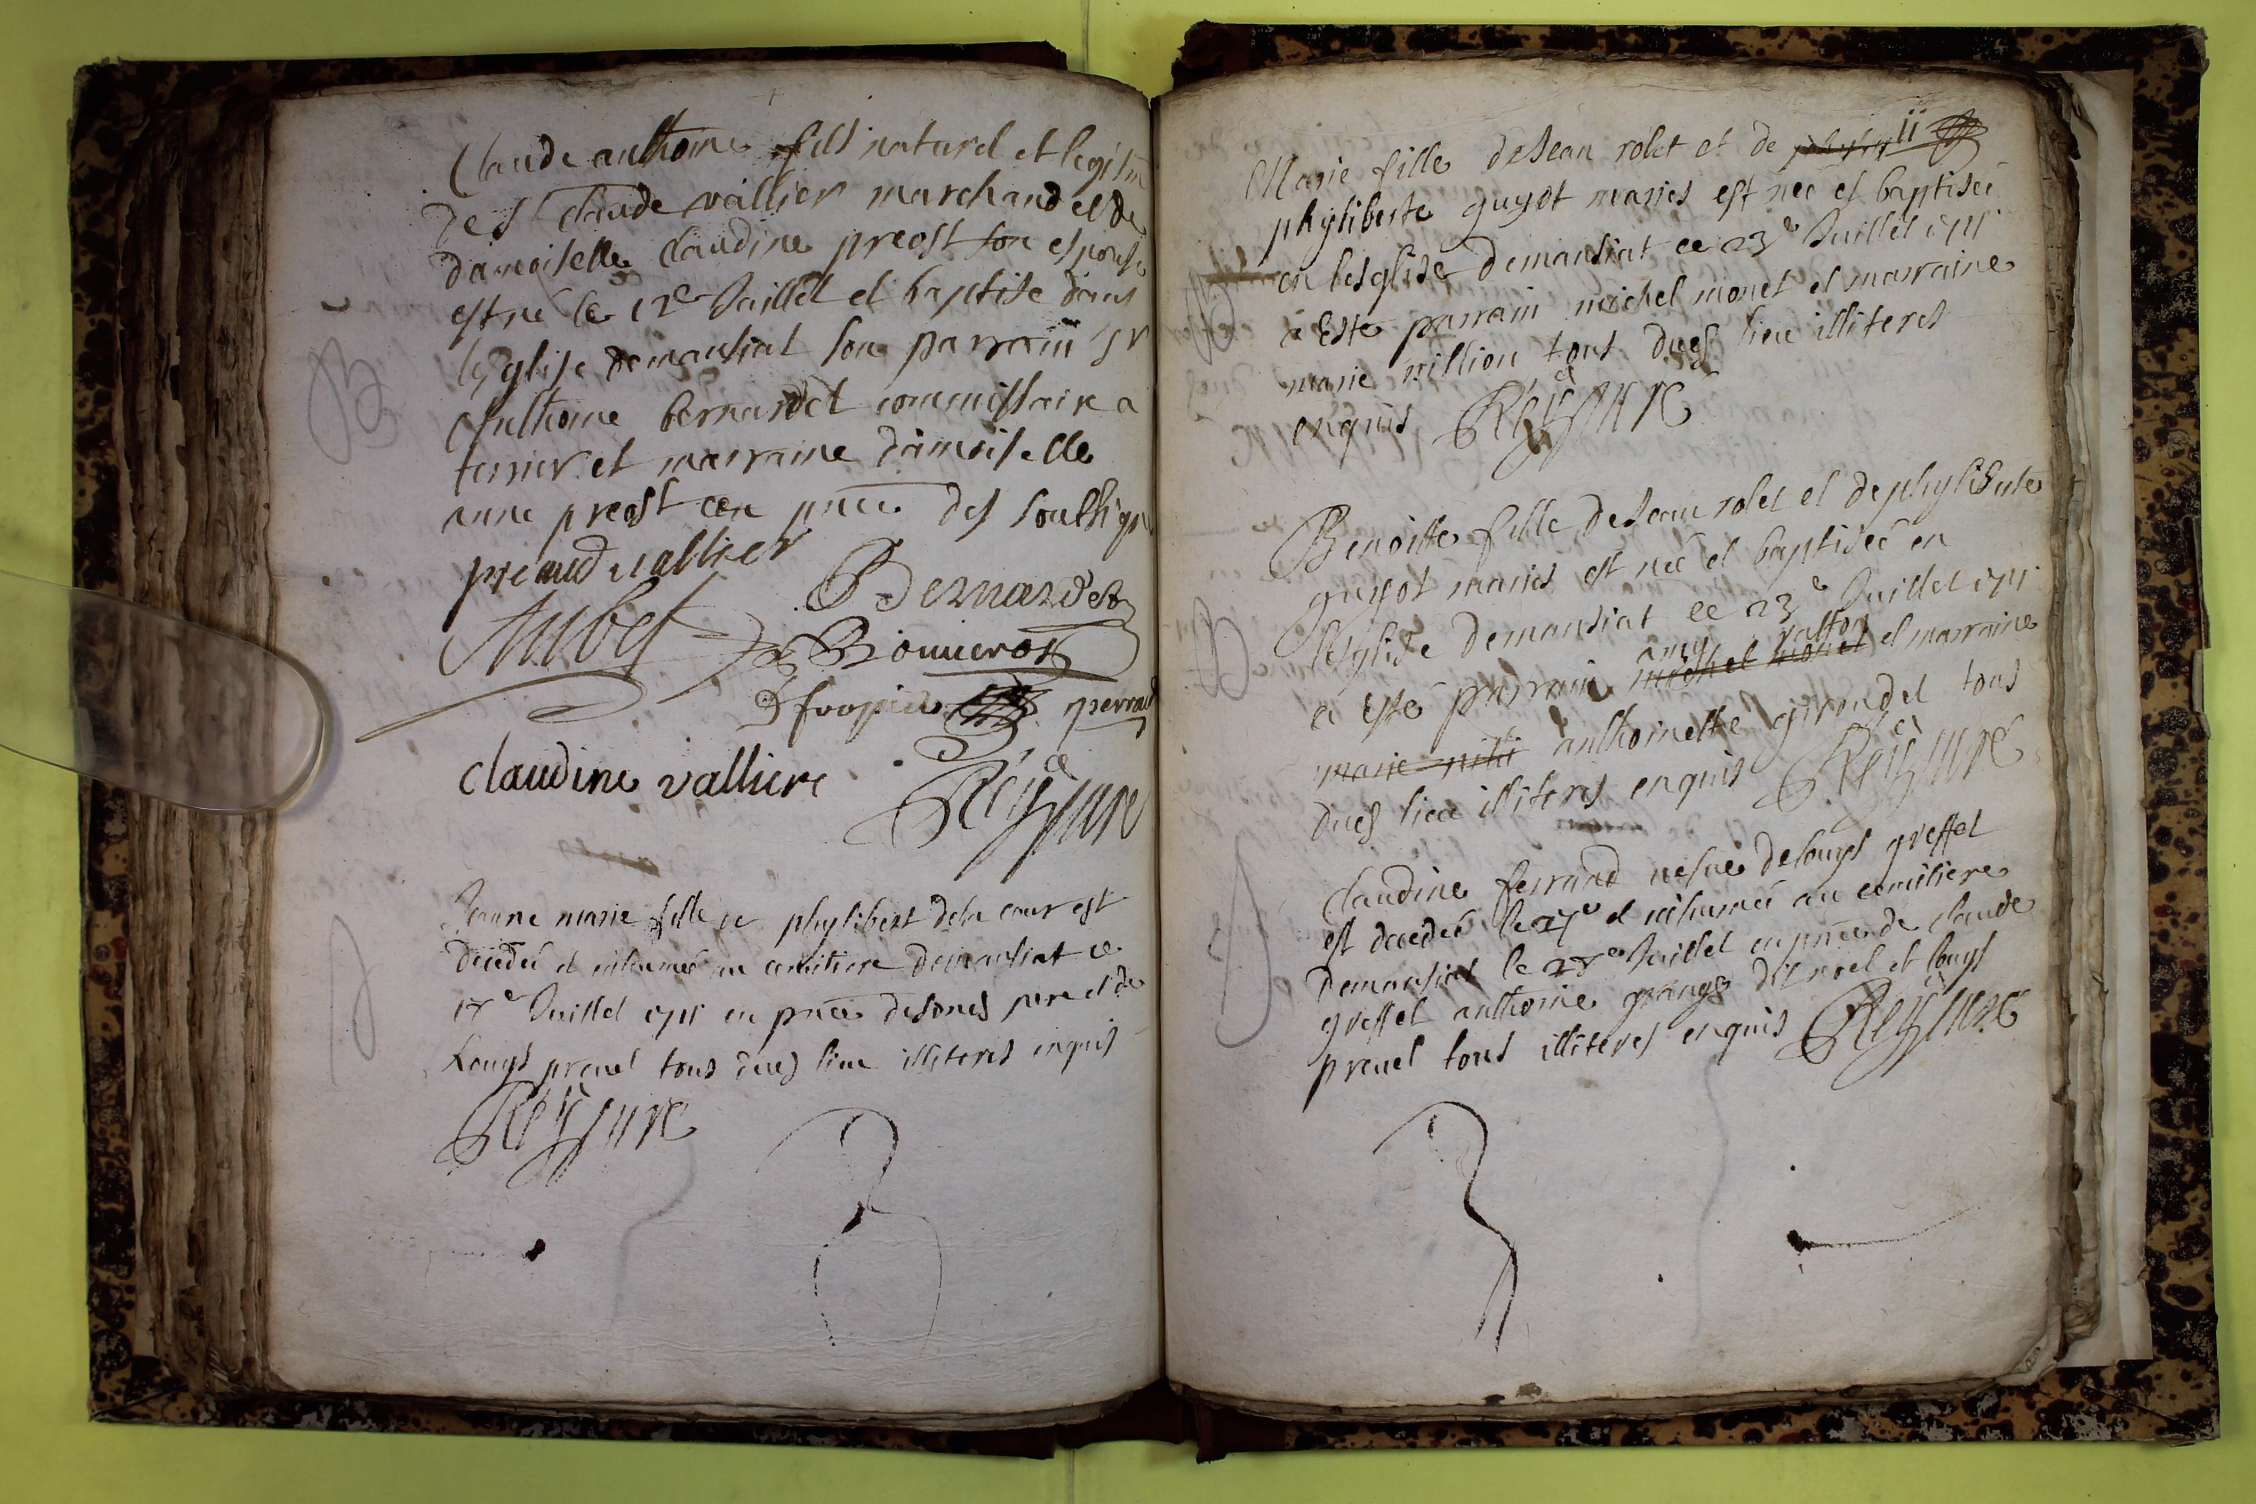 Claude anthoine fils naturel et legitim
de Sr claude vallier marchand et de
damoiselle claudine preost son espouse
est né le 12e Juillet et baptisé dans
lesglise demansiat son parrain sr
Anthoine bernardet commissaire a
terrier et marraine damoiselle
anne preost en pnce des soussigne
preaud vallier
Bernardet
Aubet
Bouuerot
perraud
claudine valliere
Reÿ curé
B
Jeanne marie fille de phylibert dela cour est
decedeé et inhumeé au cemitiere demansiat ce
17e Juillet 1711 en pnce desones pere et de
Louys preuel tous dues lieu illiteres enquis
Reÿ curé
11
Marie fille deJean rolet et de
phyliberte guyot mariés est neé et baptiseé
en lesglise demansiat ce 23e Juillet 1711
a esté parrain michel monet et marraine
marie million tous dues lieu illiteres
enquis Reÿ curé
B
Benoitte fille deJean rolet et dephyliberte
guyot mariés est neé et baptiseé en
lesglise demansiat ce 23e Juillet 1711
a esté parrain michel monet et marraine
marie anthoinette girondel tous
dues lieu illiteres enquis Reÿ curé
B
Claudine ferrand vesue delouys greffet
est decedeé le 27e et inhumeé au cemitiere
demansiat le 28e Juillet en pnce de claude
greffet anthoine grange dit noel et louys
preuel tous illiteres enquis Reÿ curé